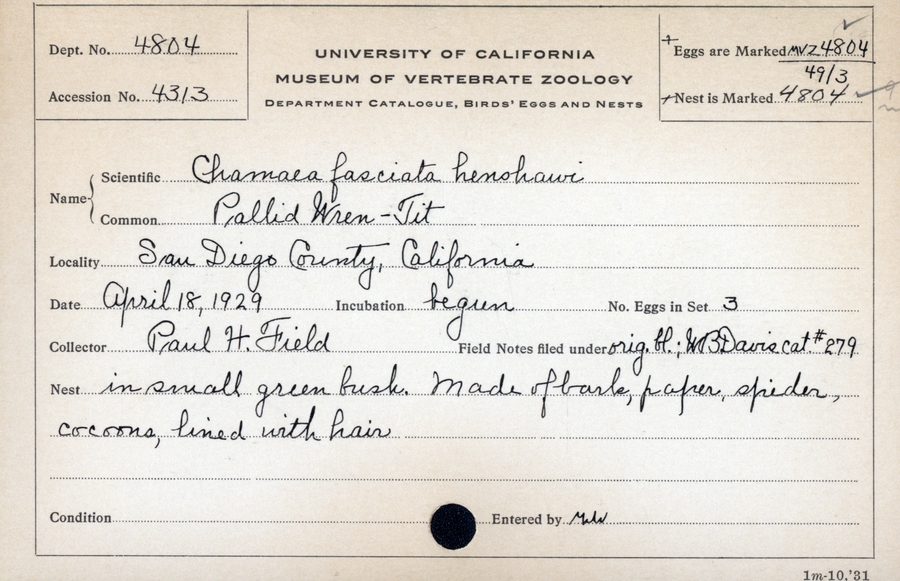 Dept. No. 4804
Accession No. 4313
UNIVERSITY OF CALIFORNIA
MUSEUM OF VERTEBRATE ZOOLOGY
DEPARTMENT CATALOGUE, BIRDS' EGGS AND NESTS
+Eggs are Marked MVZ 4804
49/3
+Nest is Marked 4804
Name
Scientific Chamaea fasciata henshawi
Common Pallid Wren-Tit
Locality San Diego County, California
Date April 18, 1929 Incubation begun No. Eggs in Set 3
Collector Paul H. Field Field Notes filed under orig. bl.; WBDavis cat. #279
Nest in small green bush. Made of bark, paper, spider,
cocoons, lined with hair
Condition Entered by
1m-10,'31